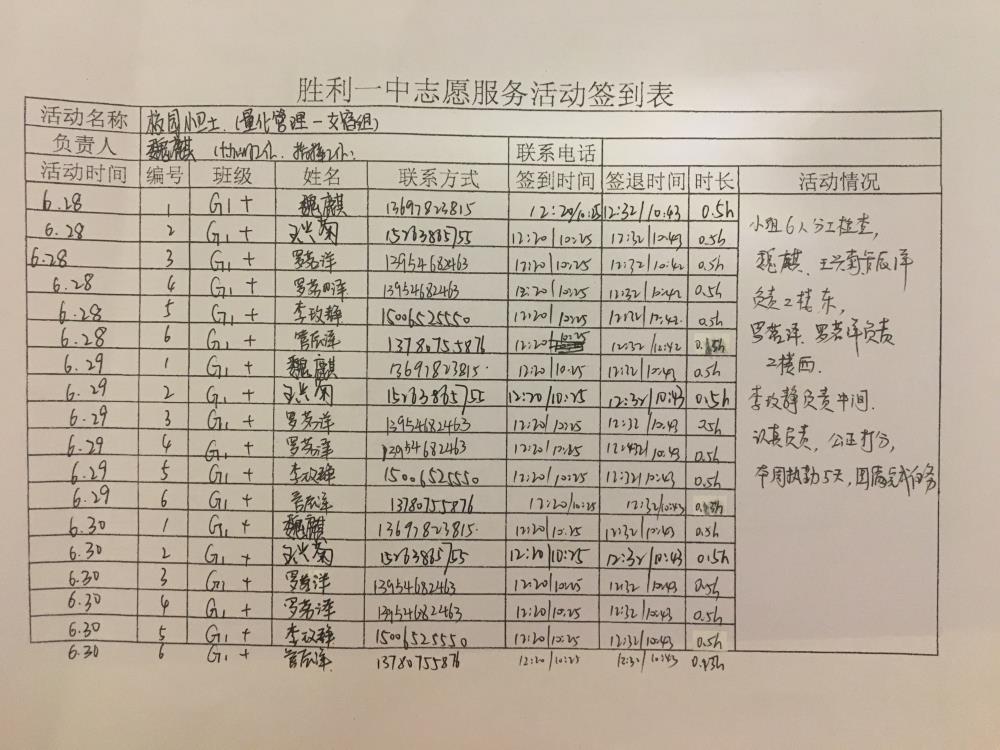 胜利一中志愿服务活动签到表
活动名称 校园小卫士（量化管理一文宿组）
负责人 魏麒 联系电话
活动时间 编号 班级 姓名 联系方式 签到时间 签退时间 时长 活动情况
6.28 1 G1+ 魏麒 13697823815 12:20/10:25 12:32/10:43 0.5h
6.28 2 G1+ 王兴菊 15263865755 12:20/10:25 12:32/10:43 0.5h
6.28 3 G1+ 罗茗洋 13954682463 12:20/10:25 12:32/10:42 0.5h
6.28 4 G1+ 罗茗泽 13954682463 12:20/10:25 12:32/10:42 0.5h
6.28 5 G1+ 李玫静 15006525550 12:20/10:25 12:32/12:42 0.5h
6.28 6 G1+ 管辰泽 13780755876 12:20 10:25 12:32/12:42
6.29 1 G1+ 魏麒 13697823815 12:20/10:25 12:32/10:43 0.5h
6.29 2 G1+ 王兴菊 15263865755 12:20/10:25 12:32/10:43 0.5h
6.29 3 G1+ 罗茗洋 13954682463 12:20/10:25 12:32/10:43 0.5h
6.29 4 G1+ 罗茗泽 13954682463 12:20/10:25 10:43 0.5h
6.29 5 G1+ 李玫静 15006525550 12:20/10:25 12:32/10:43 0.5h
6.29 6 G1+ 管辰泽 13780755876 12:20/10:25 12:32/10:43
6.30 1 G1+ 魏麒 13697823815 12:20/10:25 12:32/10:43 0.5h
6.30 2 G1+ 王兴菊 15263865755 12:20/10:25 12:32/10:43 0.5h
6.30 3 G1+ 罗茗洋 13954682463 12:20/10:25 12:32/10:43 0.5h
6.30 4 G1+ 罗茗泽 13954682463 12:20/10:25 12:32/10:43 0.5h
6.30 5 G1+ 李玫静 15006525550 12:20/10:25 12:32/10:43 0.5h
6.30 6 G1+ 管辰泽 13780755876 12:20/10:25 12:32/10:43
小组6人分工检查，
魏麒、王兴菊管辰泽
负责2楼东，
罗茗泽、罗茗洋负责
2楼西.
李玫静负责中间.
认真负责，公正打分，
本周执勤5天，圆满完成任务